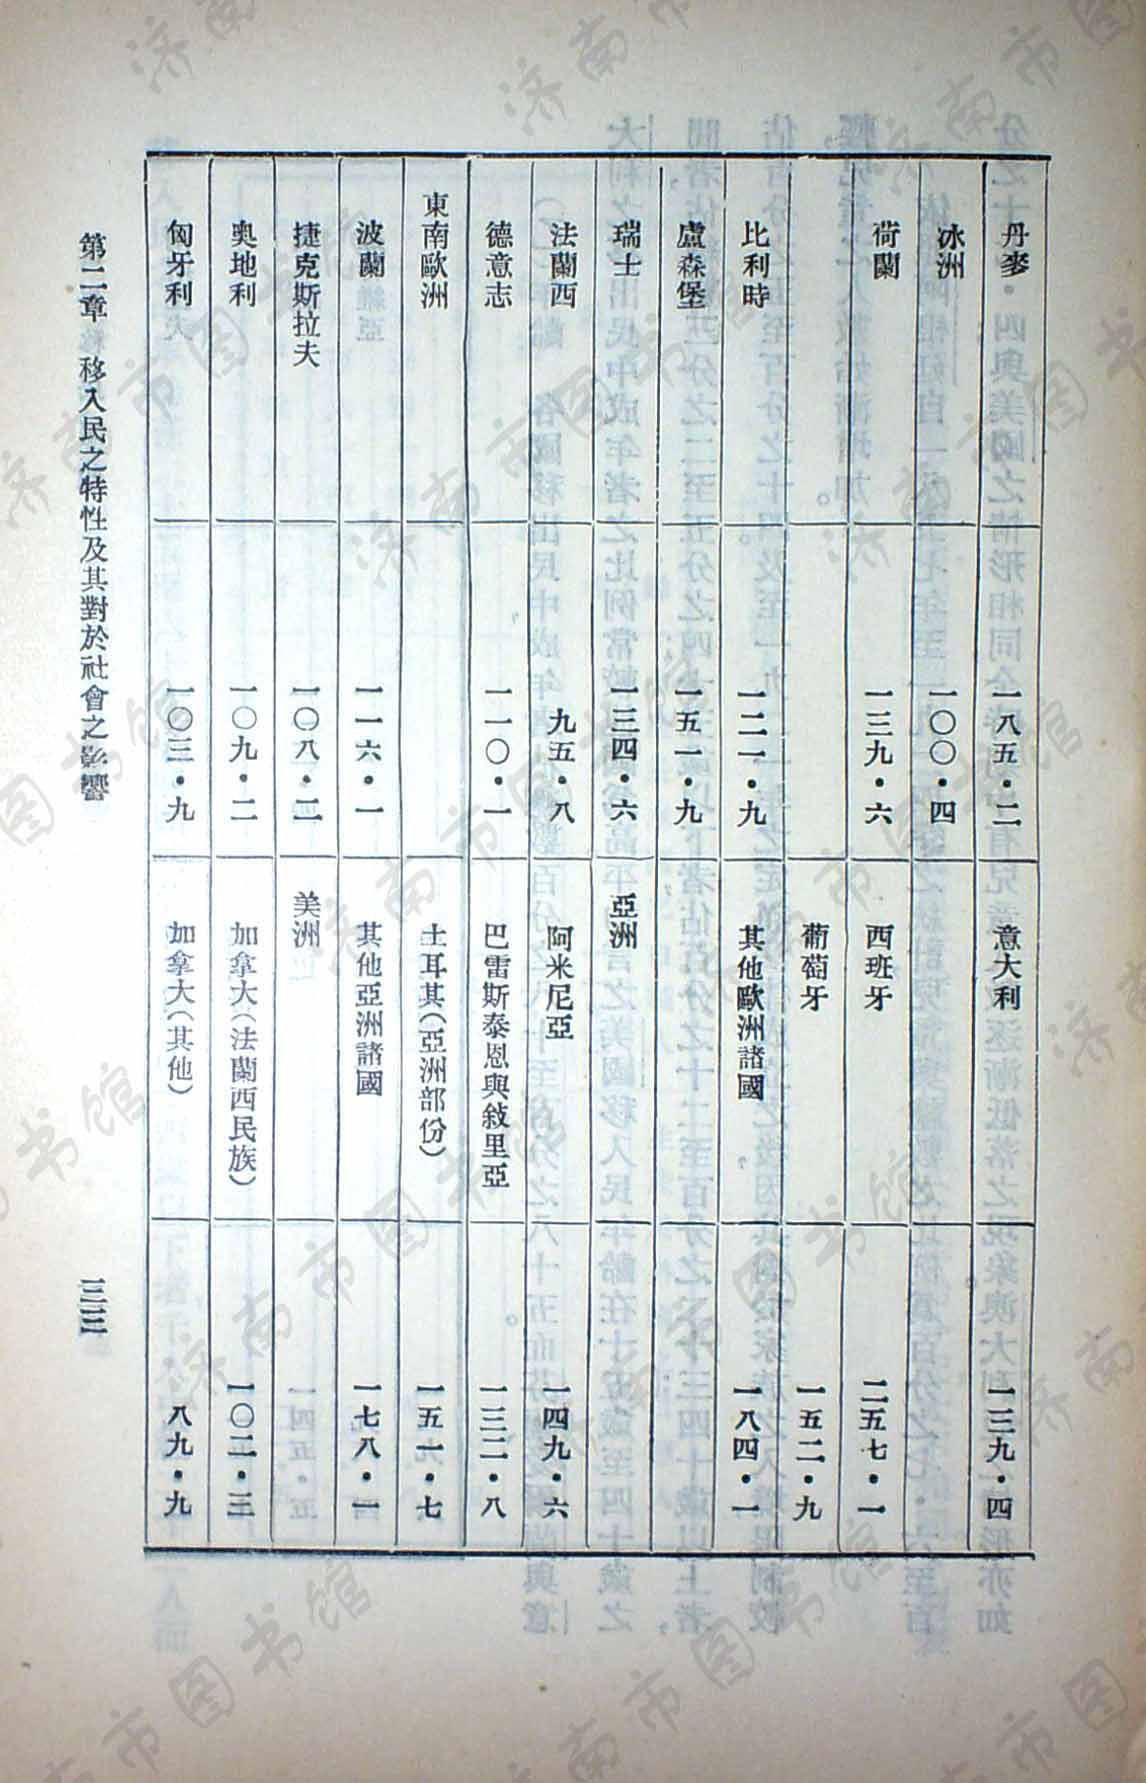 丹麥　一八五・二　意大利　一三九・四
冰洲　一〇〇・四
荷蘭　一三九・六　西班牙　二五七・一
葡萄牙　一五二・九
比利時　一二一・九　其他歐洲諸國　一八四・一
盧森堡　一五一・九
瑞士　一三四・六　亞洲
法蘭西　九五・八　阿米尼亞　一四九・六
德意志　一一〇・一　巴雷斯泰恩與敍里亞　一三二・八
東南歐洲　土耳其（亞洲部份）　一五一・七
波蘭　一一六・一　其他亞洲諸國　一七八・一
捷克斯拉夫　一〇八・二　美洲
奧地利　一〇九・二　加拿大（法蘭西民族）　一〇二・三
匈牙利　一〇三・九　加拿大（其他）　八九・九
第二章　移入民之特性及其對於社會之影響　三三
济南市图书馆